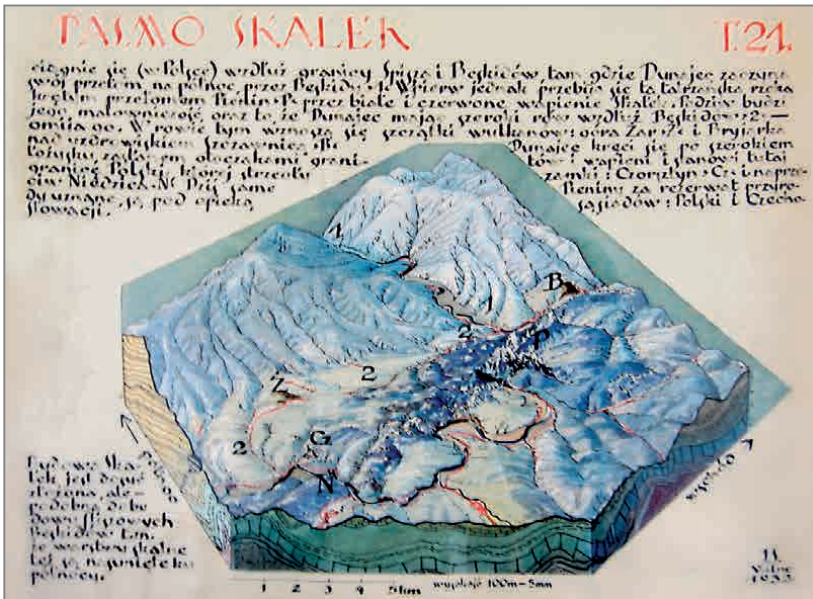 PASMO SKAŁEK T.21.
ciągnie się (w Polsce) wzdłuż granicy Spisza i Beskidów, tam gdzie Dunajec zaczyna
swój przełom na północ przez Beskidy - 1. Wpierw jednak przebija się ta tatrzańska rzeka
krętym przełomem Pienin - P. przez białe i czerwone wapienie Skałek. Podziw budzi
jego malowniczość oraz to że Dunajec mając szeroki rów wzdłuż Beskidów - 2 -
omija go. W rowie tym wznoszą się szczątki wulkanów: góra Żar - Ż i Bryjarka
nad uzdrowiskiem Szczawnicą - B. Dunajec kręci się po szerokiem
łożysku zasłanym otoczakami granitów i wapieni i stanowi tutaj
granicę Polski, której strzegły zamki: Czorsztyn - Cz i naprze-
ciw Niedzica - N. Dziś same Pieniny za rezerwat przyro-
dy uznane, są pod opieką sąsiadów: Polski i Czecho-
słowacji.
1
B
1
2
P
2
Ż
2
Cz
N
Budowa Ska-
łek jest dość
złożona, ale
podobna do bu-
dowy fliszowych
Beskidów tem,
że warstwy skalne
też są nasunięte ku
północy.
1 2 3 4 5 km wysokość 100m - 5mm